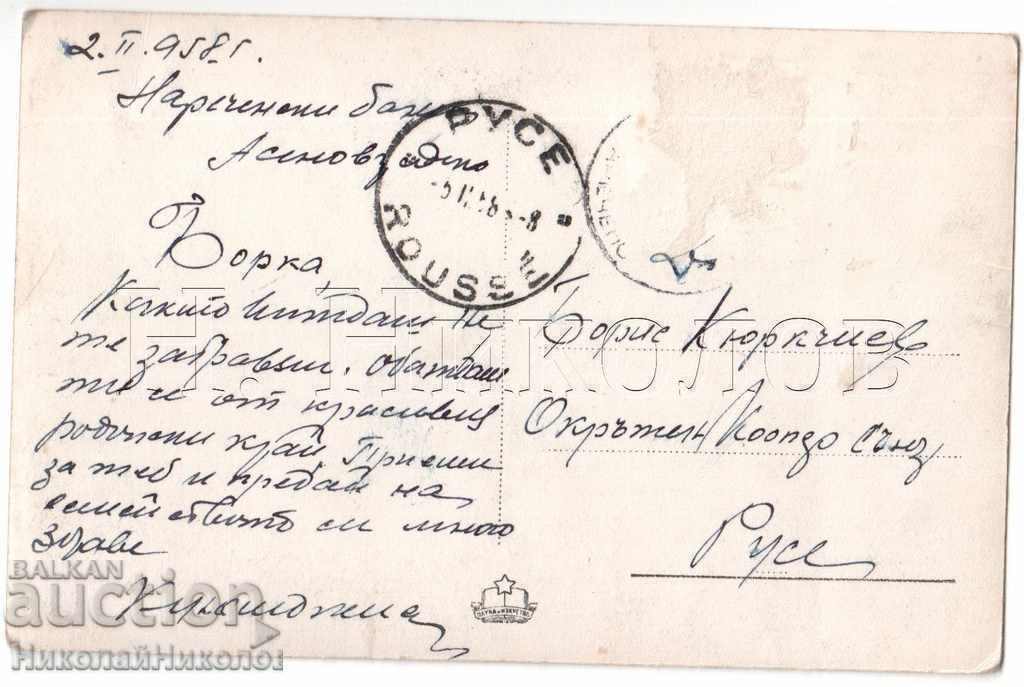 2.II.958 г.
Нареченски бани
Асеновградско
Борка,
Както виждаш не
те забравям. Обаждам
ти се от красивия
родопски край. Приеми
за теб и предай на
семейството си много
здраве
РУСЕ
ROUSSE
Борис Кюркчиев
Окръжен Коопсъюз
Русе
НАУКА и ИЗКУСТВО
Н. НИКОЛОВ
BALKAN
auction
НиколайНиколов